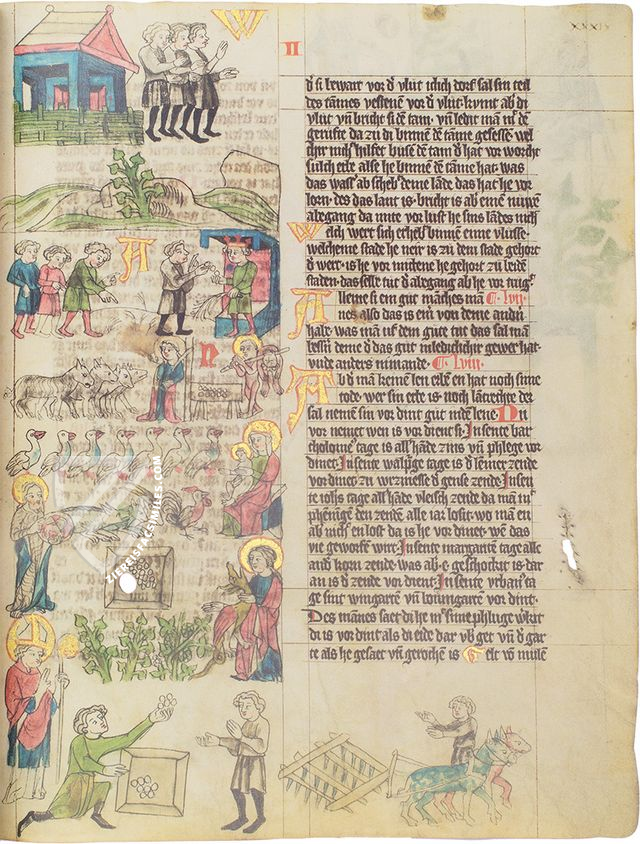 xxxix
II
W
A
N
ZIEREISFACSIMILES.COM
d si bewart vor d vlut ichch dorf sal sin teil
des tāmes vestenē vor d vlut kvmt ab di
vlut vn̄ bricht si dē tam vn̄ ledit man mt de
gerufte da zu di binnē dē tāme gesessē wel
chir nich hilfet busē dē tam d hat vor worcht
sulch erbe alse he binnē dē tāme hat was
das wassˀ ab scheb deme lāde das hat he vor
lorn des das lant is bricht is ab eine nuwē
abegang da mite vor lust he sins lādes nich
Welch wert sich erhebt binnen eime vlusse
welcheme stade he neir is zu dem stade gehort
d wert is he vor mittene he gehort zu beidē
staden das selbe tut d abegang ab he vor truget
Alleine si ein gut māches mā C. lvii
nes also das is eim von deme andn
habe was mā uf dem gute tut das sal mā
bessn deme d das gut ledichlichˀ gewer hat
unde anders nimande C. lviii
Ab d mā keinē len erbē en hat noch sime
tode wer sin erbe is noch lātrechte der
sal nemē sin vor dint gut in dē lene Nu
vor nemet wen is vor dient si In sente bar
tholomeˀ tage is allˀ hāde zins vn̄ phlege vor
dinet In sente walpurge tage is d lemer zende
vor dinet zu worzmesse d gense zende In sen
te iohs tage allˀ hāde vleisch zende da mā in
phenīge den zendē alle iar losit wo mā en
ab nich en lost da is he vor dinet wē das
vie geworfē wirt In sente margaretē tage alle
and korn zende was ab e geschockit is dar
an is d zende vor dient In sente vrbans ta
ge sint wingartē vn̄ boumgartē vor dint
Des mānes saet di he mt sime phluge wˀkit
di is vor dint als di eide dar ubˀ get vn̄ d gar
te als he gesaet vn̄ gerochen is Gelt vō mulen